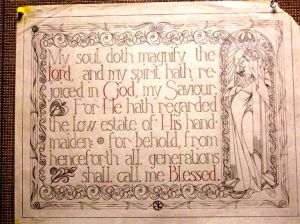 My soul doth magnify the
lord, and my spirit hath re-
joiced in God, my Saviour.
For He hath regarded
the low estate of His hand-
maiden: for behold, from
henceforth all generations
shall call me Blessed.